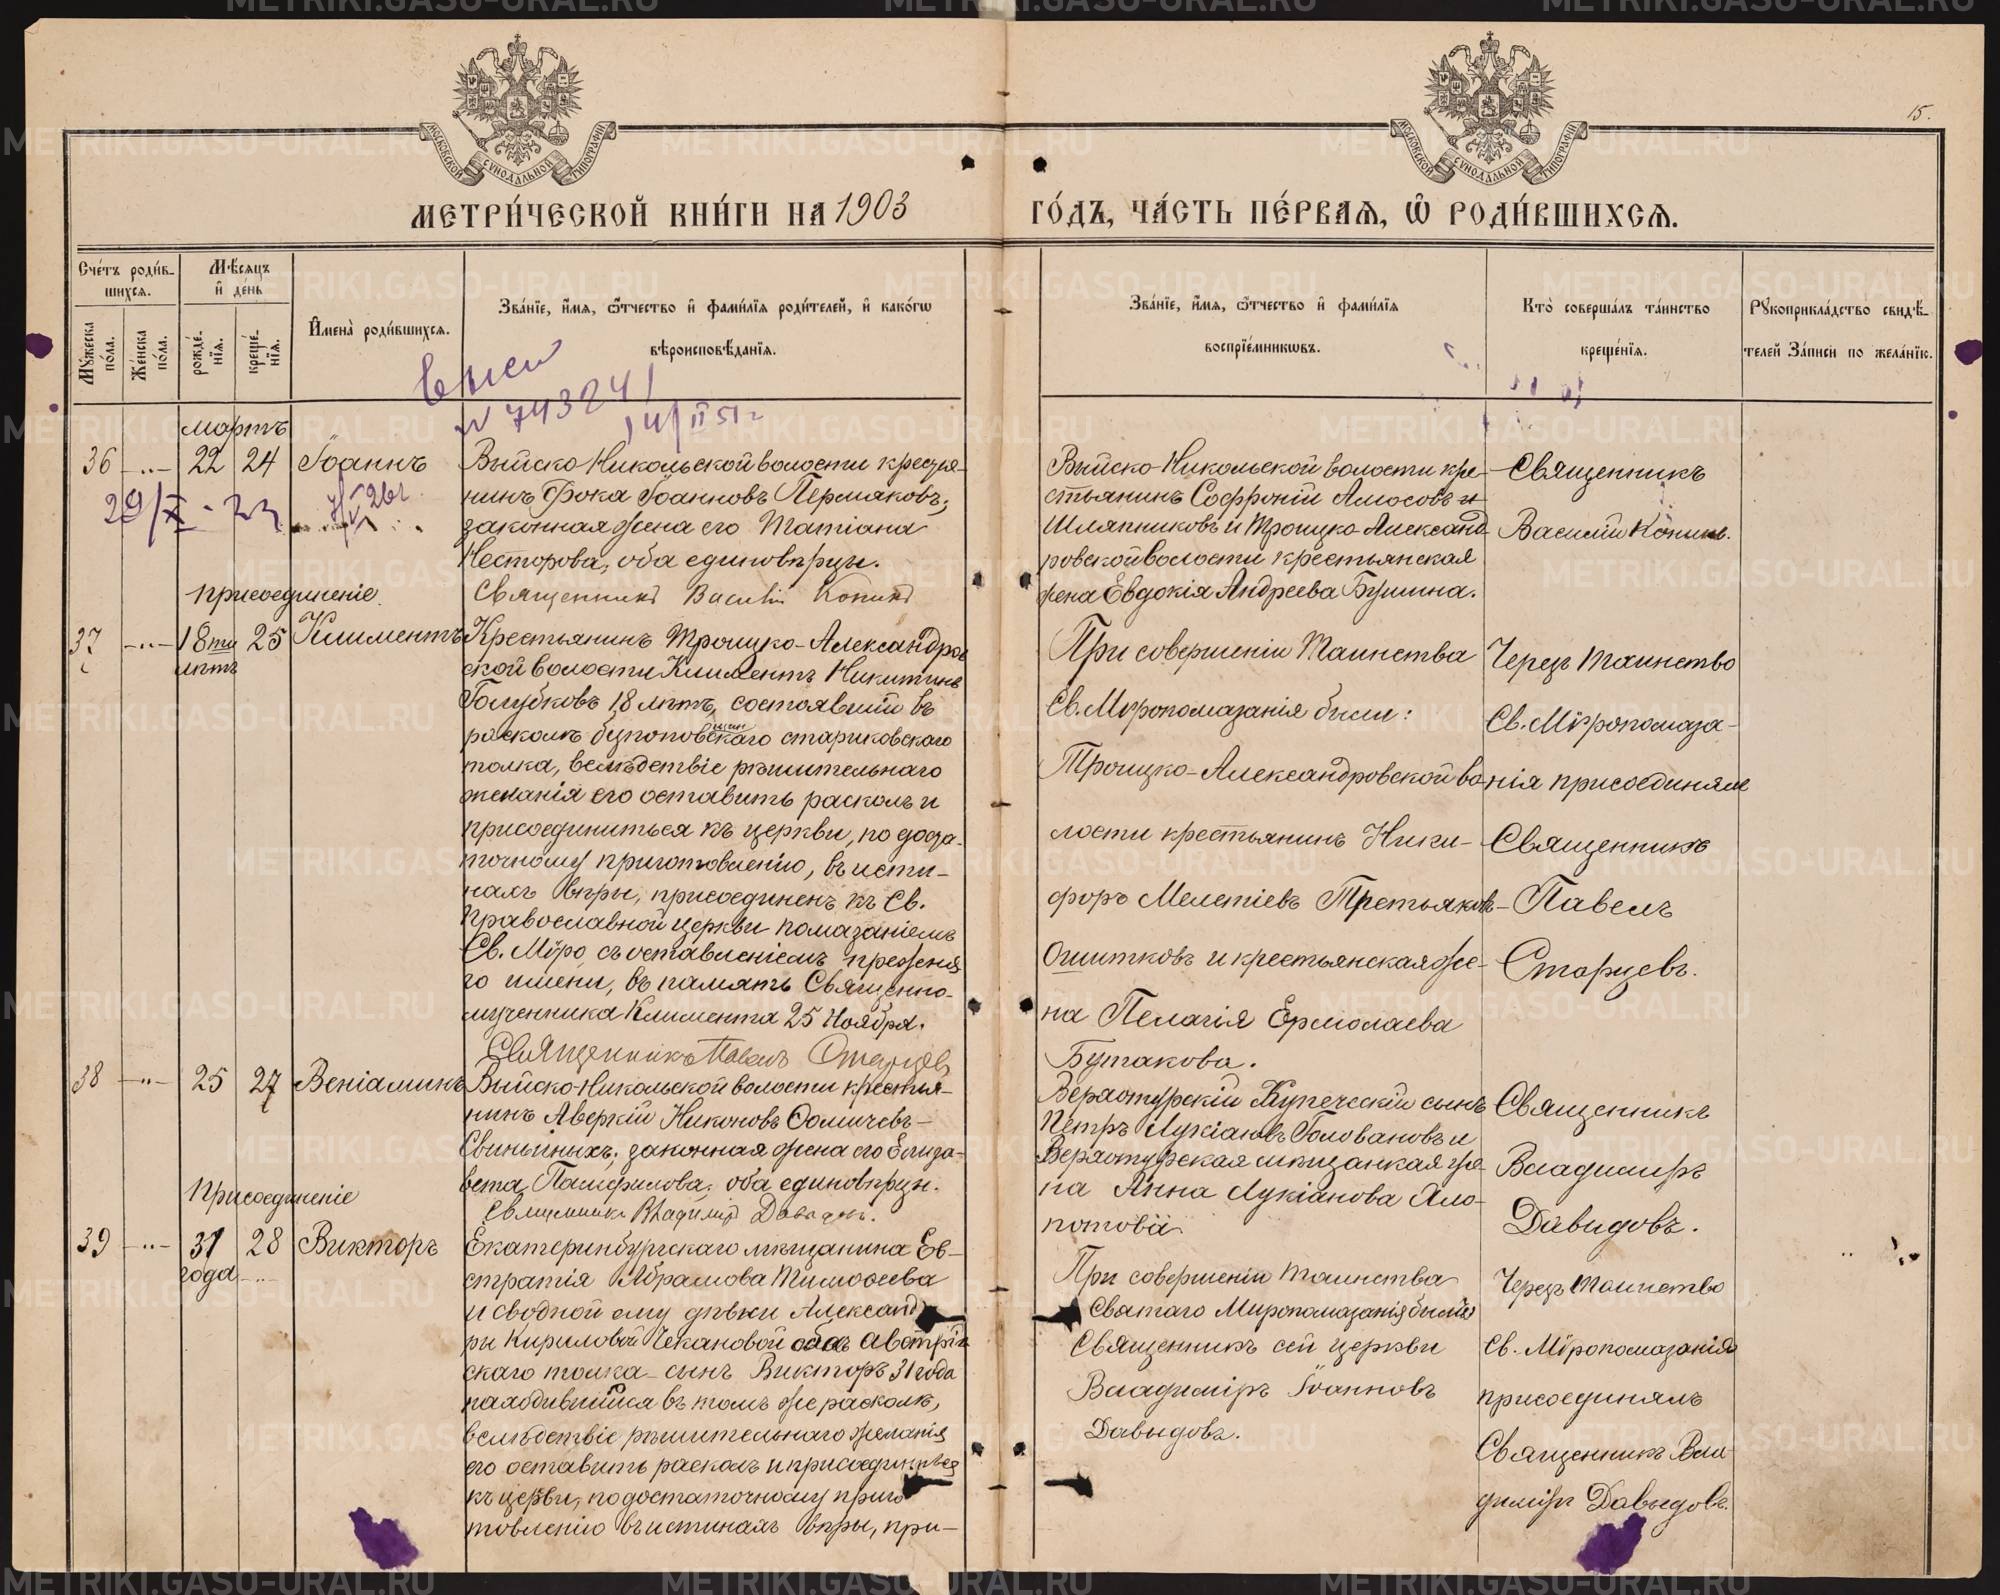 15.
МЕТРИ́ЧЕСКОЙ КНИ́ГИ НА 1903 ГО́ДЪ, ЧА́СТЬ ПЕ́РВАѦ, Ѡ҆ РОДИ́ВШИХСѦ.
Сче́тъ роди́в-
шихсѧ.
Мꙋ́жеска по́ла.
Же́нска по́ла.
Мѣ́сѧцъ и҆ де́нь
рожде́-
нїѧ.
креще́-
нїѧ.
И҆мена̀ роди́вшихсѧ.
Зва́нїе, и҆́мѧ, ѻ҆́тчество и҆ фами́лїѧ роди́телей, и҆ како́гѡ
вѣроисповѣ́данїѧ.
Зва́нїе, и҆́мѧ, ѻ҆́тчество и҆ фами́лїѧ
воспрїе́мникѡвъ.
Кто̀ соверша́лъ та́инство
креще́нїѧ.
Рꙋкоприкла́дство свидѣ́-
телей За́писи по жела́нїю.
№ 743241
14/II 51 г
мартъ
36 -„- 22 24 Іоаннъ
29/X - 23
Выйско-Никольской волости крестья-
нинъ Фока Іоанновъ Пермяковъ,
законная жена его Татіана
Несторова, оба единовѣрцы.
Священникъ Василій Конинъ
Выйско-Никольской волости кре-
стьянинъ Софроній Амосовъ
Шляпниковъ и Троицко-Александ-
ровской волости крестьянская
жена Евдокія Андреева Бушина.
Священникъ
Василій Конинъ.
присоединеніе
37 -„- 18ти лѣтъ 25 Климентъ
Крестьянинъ Троицко-Александров
ской волости Климентъ Никитинъ
Голубковъ 18 лѣтъ, состоявшій въ
расколѣ безпоповщинскаго стариковскаго
толка, вслѣдствіе рѣшительнаго
желанія его оставить расколъ и
присоединиться къ церкви, по доста-
точному приготовленію, въ исти-
нахъ вѣры, присоединенъ къ Св.
Православной церкви помазаніемъ
Св. Мѵро, съ оставленіемъ прежня
го имени, въ память Священно-
мученника Климента 25 Ноября.
Священникъ Павелъ Старцев
При совершеніи Таинства
Св. Мѵропомазанія были:
Троицко-Александровской во-
лости крестьянинъ Ники-
форъ Мелетіевъ Третьяковъ-
Ошитковъ и крестьянская же-
на Пелагія Ермолаева
Бутакова.
Черезъ Таинство
Св. Мѵропомаза-
нія присоединялъ
Священникъ
Павелъ
Старцевъ.
38 -„- 25 27 Веніаминъ
Выйско-Никольской волости крестья-
нинъ Аверкій Никоновъ Ѳомичевъ-
Свиньиныхъ, законная жена его Елиза-
вета Памфилова, оба единовѣрцы.
Священникъ Владиміръ Давыдовъ.
Верхотурскій Купеческій сынъ
Петръ Лукіановъ Головановъ и
Верхотурская мѣщанская же-
на Анна Лукіанова Холо-
потова
Священникъ
Владиміръ
Давидовъ.
Присоединеніе
39 -„- 31 года 28 -„- Викторъ
Екатеринбургскаго мѣщанина Ев-
стратія Абрамова Тимоѳеева
и сводной ему дѣвки Александ-
ры Кириловой Чекановой оба австрій
скаго толка - сынъ Викторъ 31 года
находившійся въ томъ же расколѣ,
вслѣдствіе рѣшительнаго желанія
его оставить расколъ и присоединиться
къ церкви, по достаточному приго
товленію въ истинахъ вѣры, при-
При совершеніи Таинства
Святаго Миропомазанія были
Священникъ сей церкви
Владиміръ Іоанновъ
Давыдовъ.
Черезъ Таинство
Св. Мѵропомазанія
присоединялъ
Священникъ Вла-
димиръ Давыдовъ.
METRIKI.GASO-URAL.RU